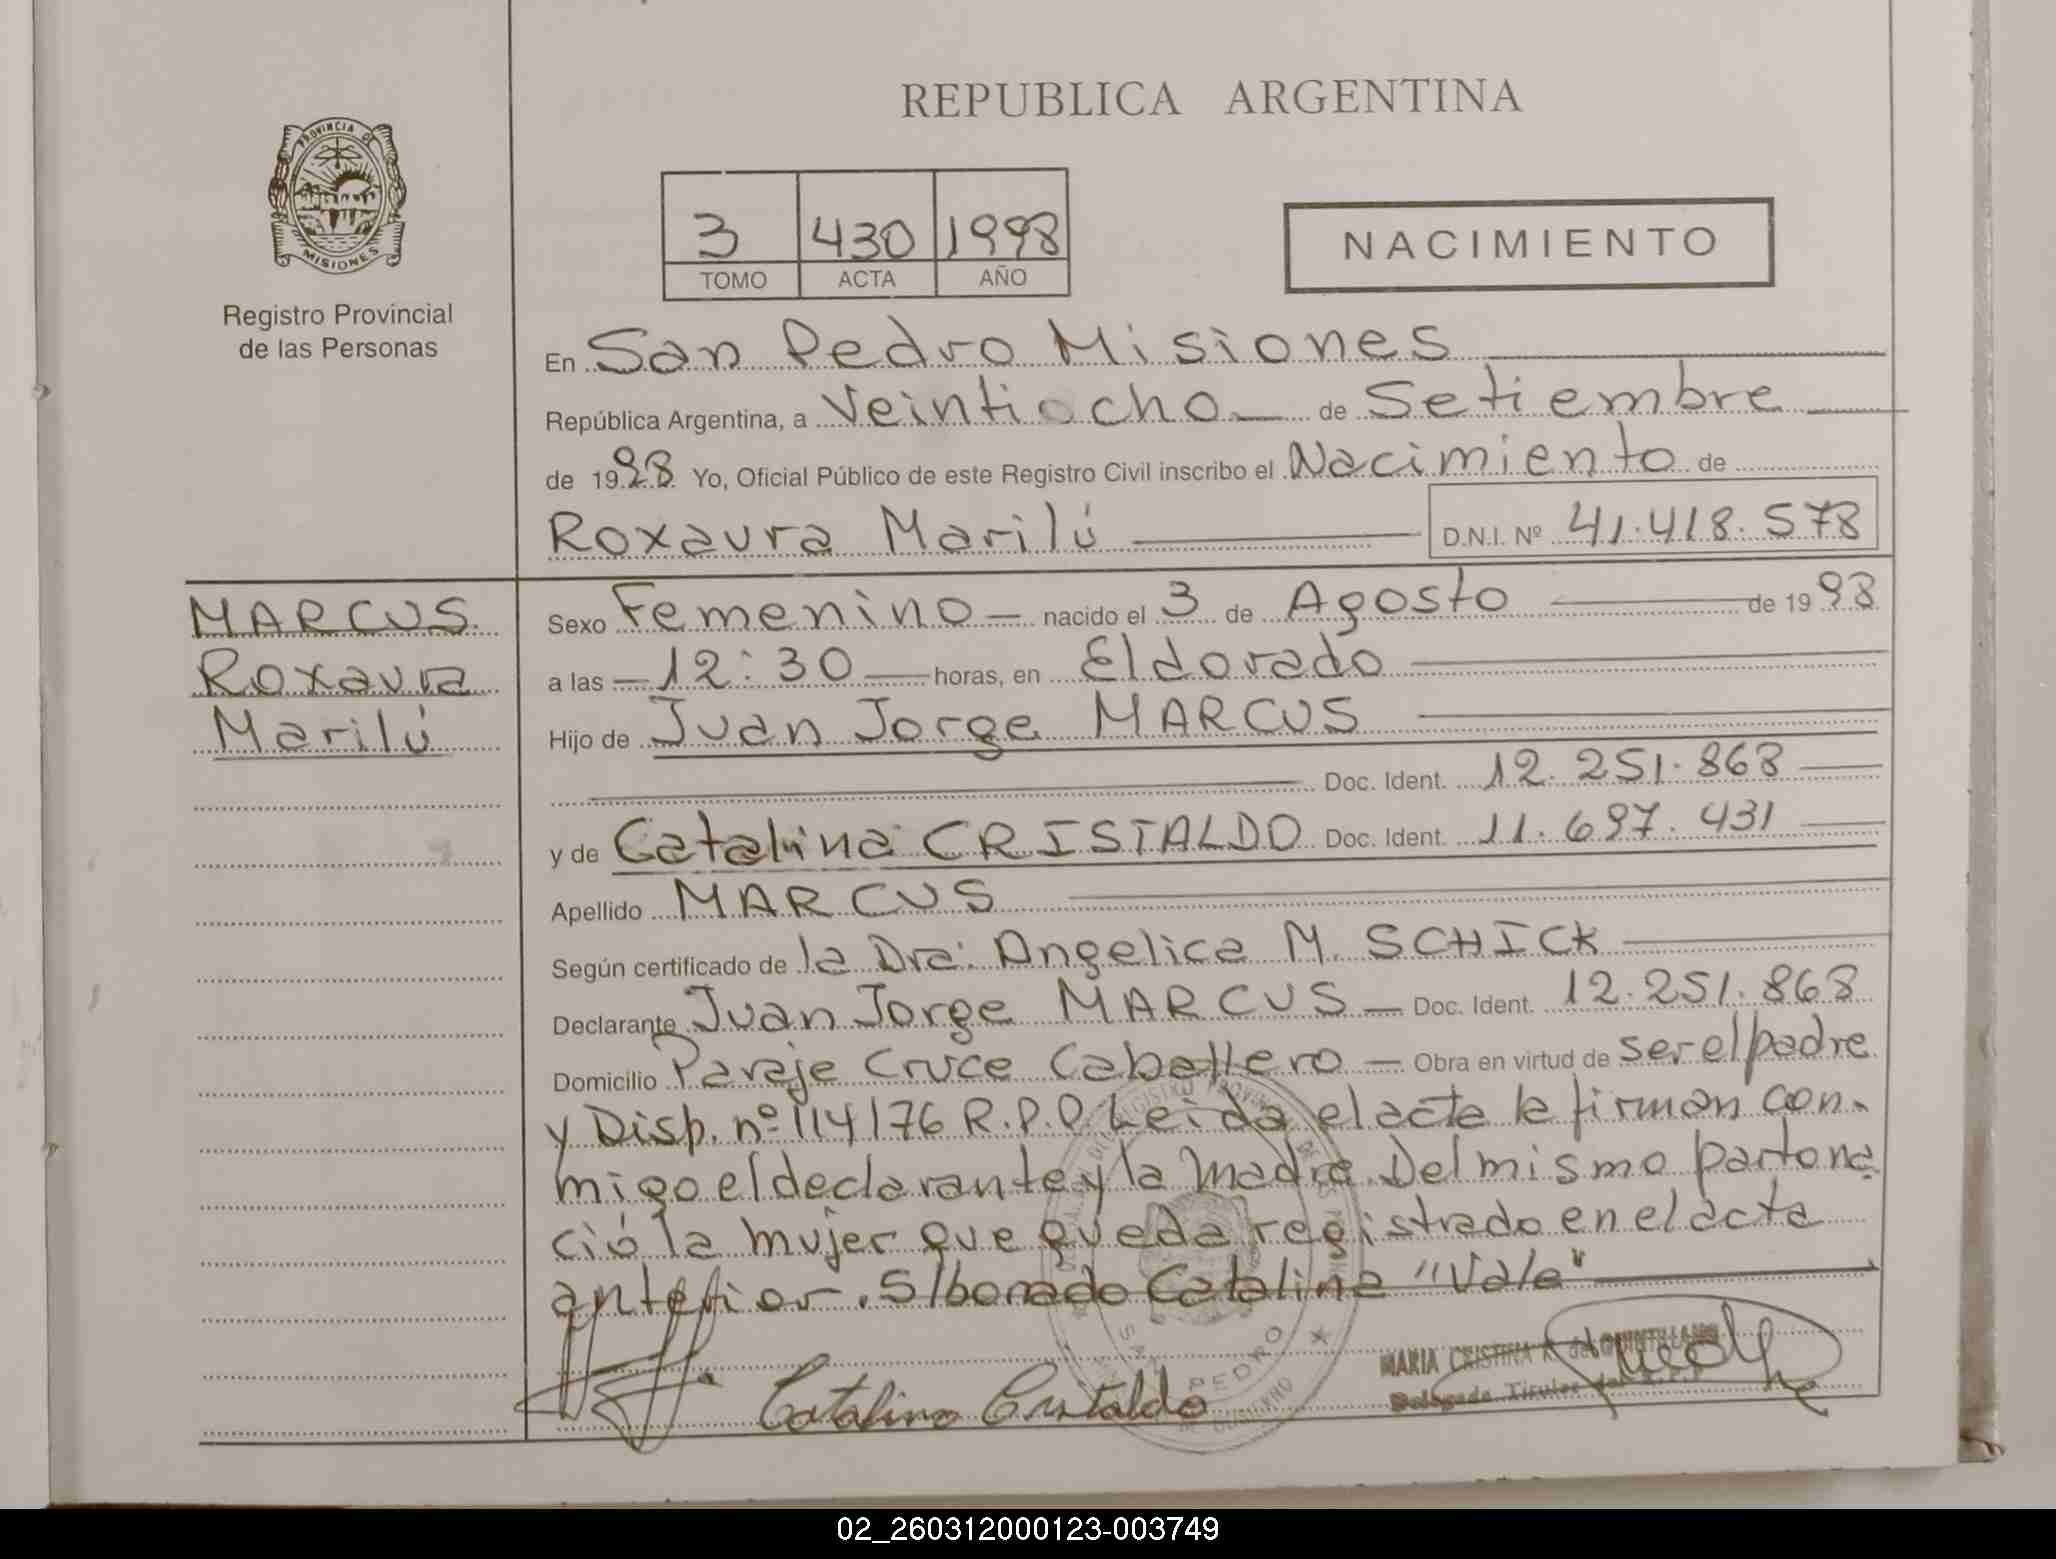 REPUBLICA ARGENTINA
PROVINCIA DE
MISIONES
Registro Provincial
de las Personas
3 430 1998
TOMO ACTA AÑO
NACIMIENTO
En San Pedro Misiones
República Argentina, a Veintiocho de Setiembre
de 1998 Yo, Oficial Público de este Registro Civil inscribo el Nacimiento de
Roxaura Marilú D.N.I. Nº 41.418.578
MARCUS
Roxaura
Marilú
Sexo Femenino nacido el 3 de Agosto de 1998
a las 12:30 horas, en Eldorado
Hijo de Juan Jorge MARCUS
Doc. Ident. 12.251.868
y de Catalina CRISTALDO Doc. Ident. 11.697.431
Apellido MARCUS
Según certificado de la Dra. Angelica M. SCHICK
Declarante Juan Jorge MARCUS Doc. Ident. 12.251.868
Domicilio Paraje Cruce Caballero Obra en virtud de ser el padre
y Disp. nº 114/76 R.P.P. Leida el acta la firman con-
migo el declarante y la madre. Del mismo parto na
ció la mujer que queda registrado en el acta
anterior. S/borrado Catalina "Vale"
Catalina Cristaldo
MARIA CRISTINA
SAN PEDRO
02_260312000123-003749